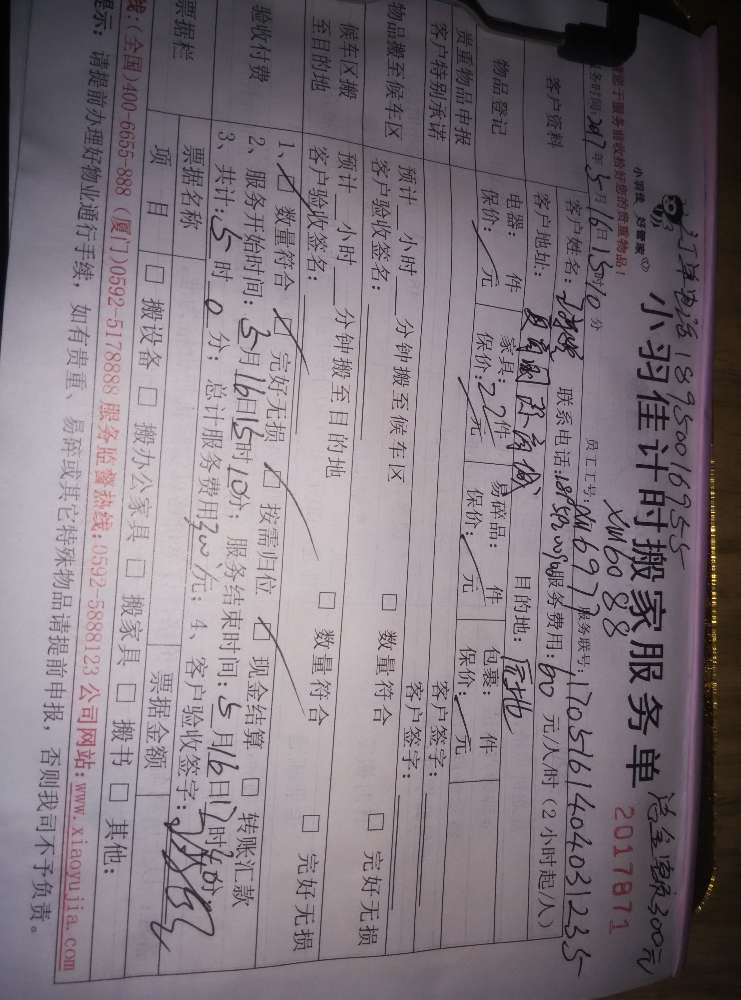 订单电话 18950016955
小羽佳 好管家
小羽佳计时搬家服务单
总金额300元
XM6088
2017871
您于服务前收拾好您的贵重物品！
务时间:2017年5月16日15时10分 员工工号:XM6977 服务联号:1705161404031235
客户资料
客户姓名: 联系电话: 服务费用:60元/人/时（2小时起/人）
客户地址: 目的地:原地
物品登记
电器: 件 家具:22件 易碎品: 件 包裹: 件
保价:／元 保价:／元 保价:／元 保价:／元
贵重物品申报 客户签字:
客户特别承诺 客户签字:
物品搬至候车区
预计__小时__分钟搬至候车区 □ 数量符合 □ 完好无损
客户验收签名:
候车区搬至目的地
预计__小时__分钟搬至目的地 □ 数量符合 □ 完好无损
客户验收签名:
验收付费
1、☑ 数量符合 ☑ 完好无损 ☑ 按需归位 ☑ 现金结算 □ 转账汇款
2、服务开始时间:5月16日15时10分; 服务结束时间:5月16日17时40分
3、共计:5时0分; 总计服务费用300元; 4、客户验收签字:
票据栏
票据名称 票据金额
项目 □ 搬设备 □ 搬办公家具 □ 搬家具 □ 搬书 □ 其他:
线:(全国)400-6655-888 (厦门)0592-5178888 服务监督热线:0592-5888123 公司网站:www.xiaoyujia.com
提示: 请提前办理好物业通行手续，如有贵重、易碎或其它特殊物品请提前申报，否则我司不予负责。